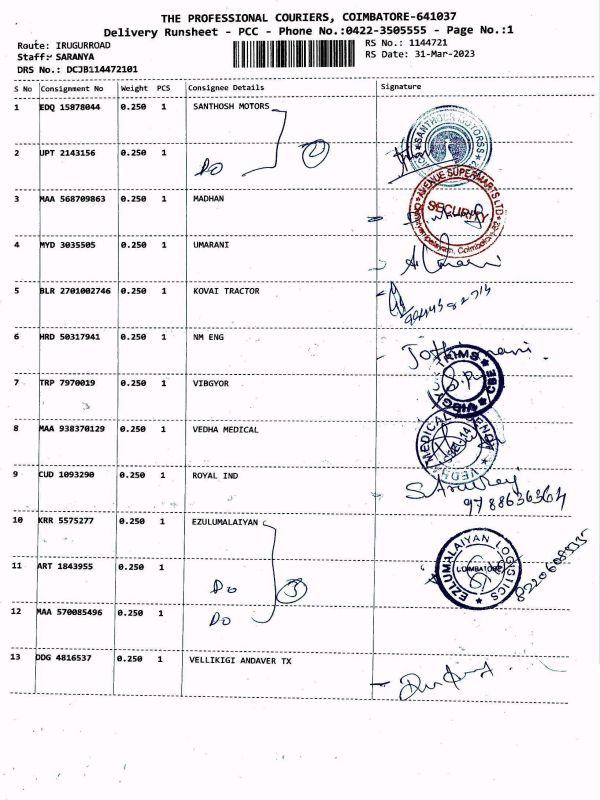 THE PROFESSIONAL COURIERS, COIMBATORE-641037
Delivery Runsheet - PCC - Phone No.:0422-3505555 - Page No.:1
Route: IRUGURROAD
RS No.: 1144721
Staff: SARANYA
RS Date: 31-Mar-2023
DRS No.: DCJB114472101
S No Consignment No Weight PCS Consignee Details Signature
1 EDQ 15878044 0.250 1 SANTHOSH MOTORS
SANTHOSH MOTORSS
2 UPT 2143156 0.250 1 Do 2
3 MAA 568709863 0.250 1 MADHAN
AVENUE SUPERMARTS LTD
SECURITY
4 MYD 3035505 0.250 1 UMARANI
5 BLR 2701002746 0.250 1 KOVAI TRACTOR
6 HRD 50317941 0.250 1 NM ENG
7 TRP 7970019 0.250 1 VIBGYOR
TRIMS CBE
8 MAA 938370129 0.250 1 VEDHA MEDICAL
VEDHA MEDICAL AGENCY
9 CUD 1093290 0.250 1 ROYAL IND
9788636364
10 KRR 5575277 0.250 1 EZULUMALAIYAN
EZLUMALAIYAN LOGISTICS
COIMBATORE
11 ART 1843955 0.250 1 Do 3
12 MAA 570085496 0.250 1 Do
13 DDG 4816537 0.250 1 VELLIKIGI ANDAVER TX